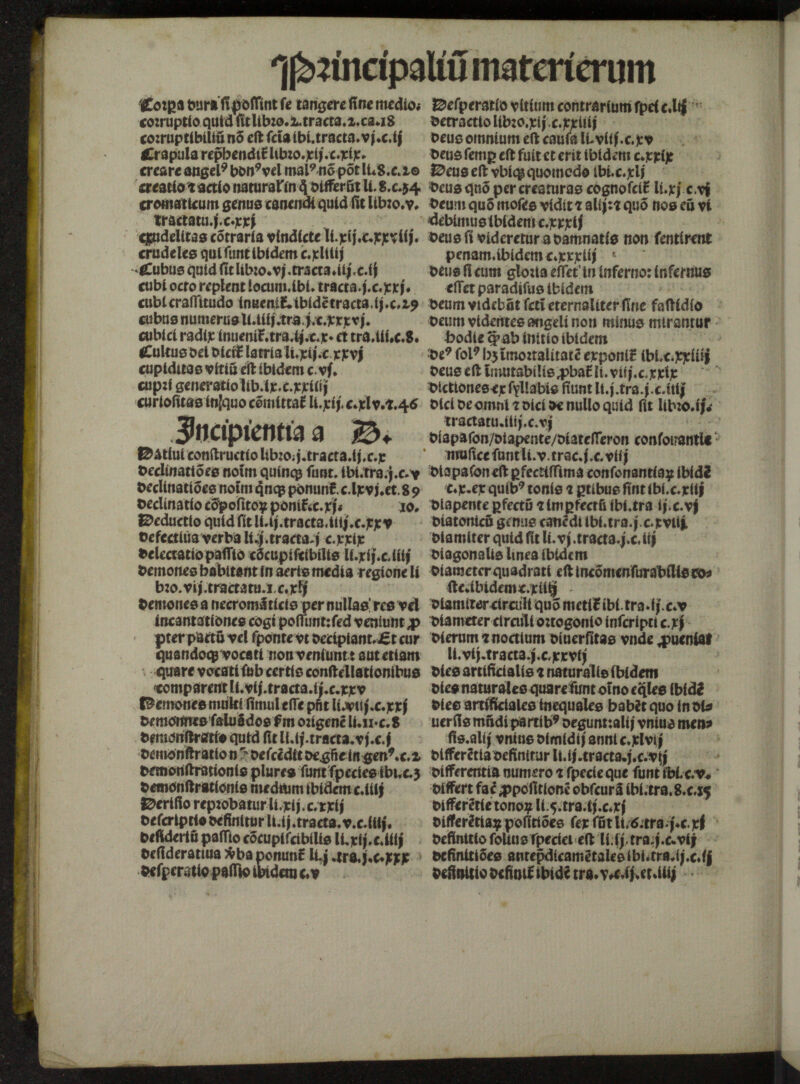 Principaliū materierum
Corpa dura si possint se tangere sine medio.
corruptio quid sit libro.2.tracta.2.ca.18
corruptibiliū nō est scīa ibi.tracta.vj.c.ij
Crapula rep̄henditᷓ libro.xij.c.xix.
creare angelꝰ bonꝰ vel malꝰ nō pōt li.8.c.20
creatio ⁊ actio natural' in q̄ differūt li.8.c.54
cromaticum genus canendi quid sit libro.v.
tractatu.j.c.xxj
crudelitas cōtraria vindicte li.xij.c.xxviij.
crudeles qui sunt ibidem c.xliiij
Cubus quid sit libro.vj.tracta.iij.c.ij
cubi octo replent locum.ibi. tracta.j.c.xxj.
cubi crassitudo inuenit᷑.ibidē tracta.ij.c.29
cubus numerus li.iiij.tra.j.c.xxxvj.
cubici radix inuenit᷑.tra.ij.c.x. et tra.iii.c.8.
Cultus dei dicit᷑ latria li.xij.c.xxvj
cupiditas vitiū est ibidem c.vj.
cupri generatio lib.ix.c.xxiiij
curiositas in quo cōmittat᷑ li.xij.c.xlv.⁊.46
Incipientia a D.
Datiui constructio libro.j.tracta.ij.c.x
declinatiōes noīm quinqꝫ sunt. ibi.tra.j.c.v
declinatiōes noīm q̄nqꝫ ponunt᷑.c.lxvj.et.89
declinatio cōpositoꝝ ponit᷑.c.xj. 10.
Deductio quid sit li.ij.tracta.iiij.c.xxv
defectiua verba li.j.tracta.j c.xxix
delectatio passio cōcupiscibilis li.xij.c.iiij
demones habitant in aeris media regione li
bro.vij.tractatu.1.c.xij
demones a necromāticis per nullas res vel
incantationes cogi possunt: sed veniunt ꝓ
pter pactū vel sponte vt decipiant. Et cur
quandoqꝫ vocati non veniunt: aut etiam
quare vocati sub certis constellationibus
comparent li.vij.tracta.ij.c.xxv
Demones multi simul esse pn̄t li.viij.c.xxj
demones saluādos fm origenē li.11.c.8
demonstratio quid sit li.ij.tracta.vj.c.j
demonstratio nō descēdit de gn̄e in genꝰ.c.2
demonstrationis plures sunt species ibi.c.3
demonstrationis medium ibidem c.iiij
Derisio reprobatur li.xij.c.xxij
descriptio definitur li.ij.tracta.v.c.iiij.
desideriū passio cōcupiscibilis li.xij.c.iiij
desideratiua v̄ba ponunt᷑ li.j.tra.j.c.xxx
desperatio passio ibidem c.v
Desperatio vitium contrarium spei c.lij
detractio libro.xij.c.xxiiij
deus omnium est causa li.viij.c.xv
deus semp est fuit et erit ibidem c.xxix
Deus est vbiqꝫ quomodo ibi.c.xlj
deus quō per creaturas cognoscit᷑ li.xj c.vj
deum quō moses vidit ⁊ alij:⁊ quō nos eū vi
debimus ibidem c.xxxij
deus si videretur a damnatis non sentirent
penam.ibidem c.xxxiij
deus si cum gloria esset in inferno: infernus
esset paradisus ibidem
deum videbūt scti eternaliter sine fastidio
deum videntes angeli non minus mirantur
hodie qꝫ ab initio ibidem
deꝰ solꝰ hꝫ īmortalitatē exponit᷑ ibi.c.xxiiij
deus est īmutabilis ꝓbat᷑ li.viij.c.xxix
dictiones ex syllabis fiunt li.j.tra.j.c.iiij
dici de omni ⁊ dici de nullo quid sit libro.ij.
tractatu.iiij.c.vj
diapason/diapente/diatesseron consonantie
musice sunt li.v.trac.j.c.viij
diapason est pfectissima consonantiaꝝ ibidē
c.x.ex quibꝰ tonis ⁊ ptibus sint ibi.c.xiij
diapente pfectū ⁊ impfectū ibi.tra ij.c.vj
diatonicū genus canēdi ibi.tra.j.c.xviij.
diamiter quid sit li.vj.tracta.j.c.iij
diagonalis linea ibidem
diameter quadrati est incōmensurabilis co
ste.ibidem c.xiiij
diamiter circuli quō metit᷑ ibi.tra.ij.c.v
diameter circuli ortogonio inscripti c.xj
dierum ⁊ noctium diuersitas vnde ꝓueniat
li.vij.tracta.j.c.xxvij
dies artificialis ⁊ naturalis ibidem
dies naturales quare sunt oīno eq̄les ibidē
dies artificiales inequales habēt quo in di
uersis mūdi partibꝰ degunt:alij vnius men
sis.alij vnius dimidij anni c.xlvij
differētia definitur li.ij.tracta.j.c.vij
differentia numero ⁊ specie que sunt ibi.c.v.
differt fac̄ ꝓpositionē obscurā ibi.tra.8.c.15
differētie tonoꝝ li.5.tra.ij.c.xj
differētiaꝝ positiōes sex sūt li.6.tra.j.c.xj
definitio solius speciei est li.ij.tra.j.c.vij
definitiōes antep̄dicamētales ibi.tra.ij.c.ij
definitio definit᷑ ibidē tra.v.c.ij.et.iiij